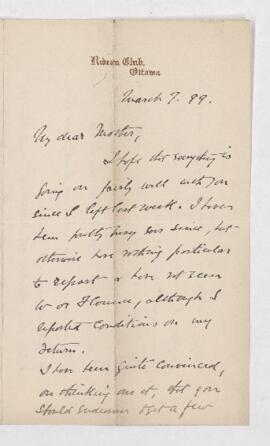 Rideau Club,
Ottawa
March 7. 99.
My dear Mother,
I hope that everything is
going on fairly well with you
since I left last week. I have
been pretty busy ever since, but
otherwise have nothing particular
to report & have not seen
or Florence, although I
reported conditions on my
return.
I have been quite convinced,
on thinking over it, that you
should endeavour to get a few